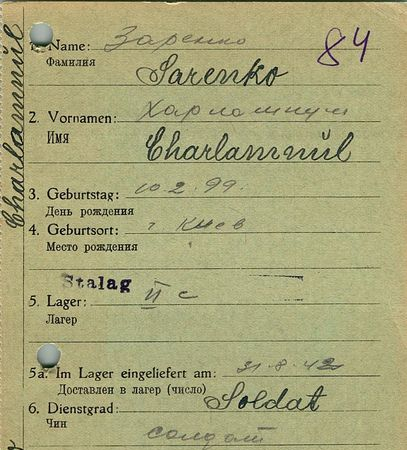 84
1. Name: Заренко
Фамилия
Sarenko
2. Vornamen: Харлампий
Имя
Charlammül
3. Geburtstag: 10.2.99.
День рождения
4. Geburtsort: г Киев
Место рождения
Stalag
5. Lager: II c
Лагер
5a. Im Lager eingeliefert am: 31.8.42
Доставлен в лагер (число)
6. Dienstgrad: Soldat
Чин
солдат
Charlammül